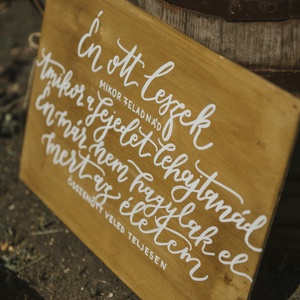 Én ott leszek
MIKOR FELADNÁD
Amikor a fejedet lehajtanád
Én már nem hagylak el
mert az életem
ÖSSZENŐTT VELED TELJESEN